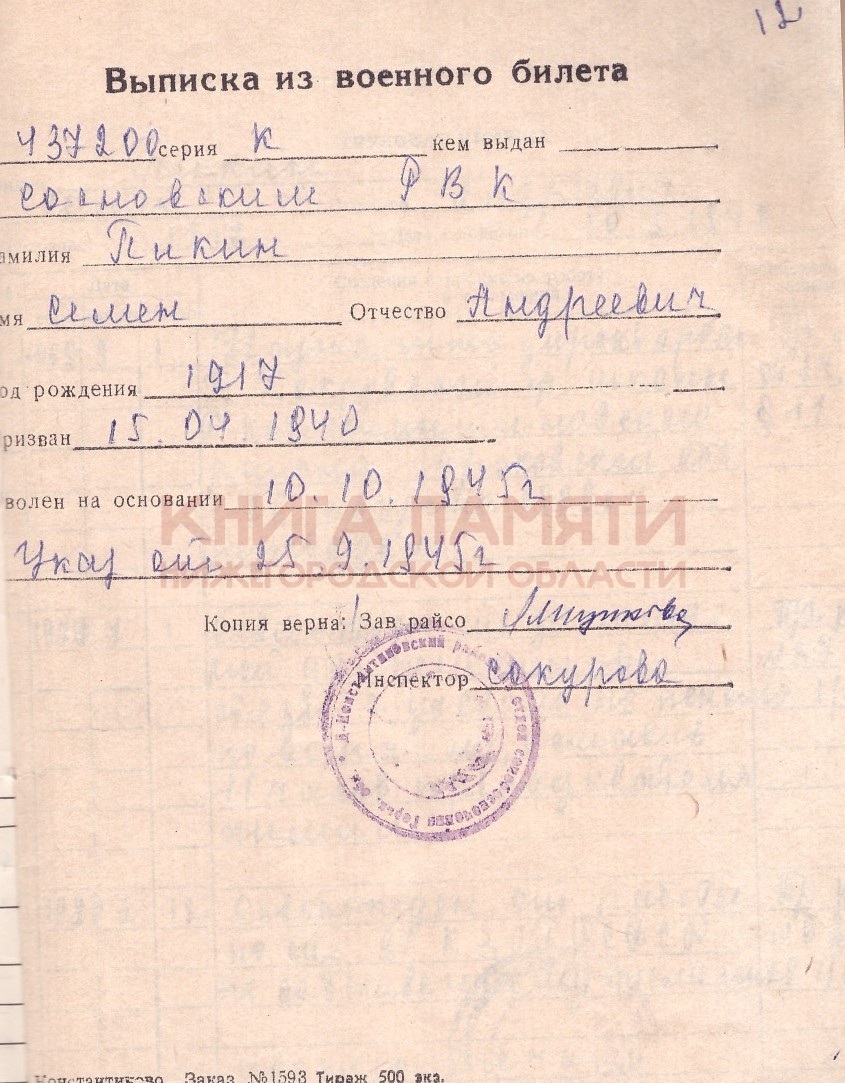 12
Выписка из военного билета
437200 серия К кем выдан
Сосновским РВК
амилия Пикин
мя Семен Отчество Андреевич
од рождения 1917
ризван 15.04 1940
волен на основании 10.10.1945г
КНИГА ПАМЯТИ
Указ от 25.9.1945г
НИЖЕГОРОДСКОЙ ОБЛАСТИ
Копия верна: Зав райсо
Инспектор Сокурова
Д-Константиновский отдел соцобеспечения Горьк. обл.
Константиново Заказ №1593 Тираж 500 экз.